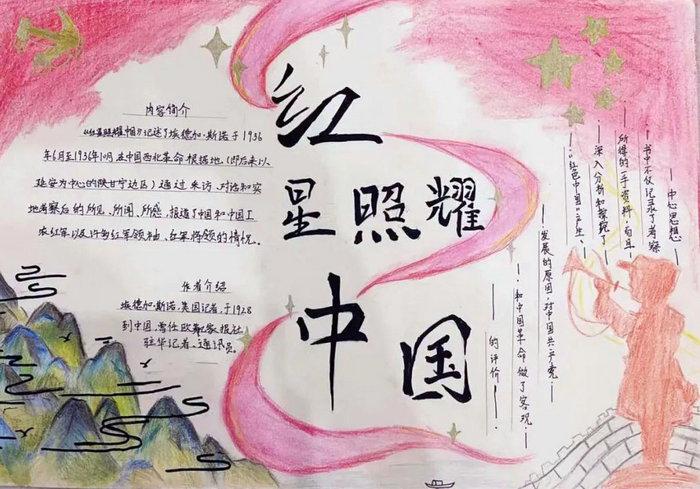 红
星照耀
中国
内容简介
《红星照耀中国》记述了埃德加·斯诺于1936
年6月至1936年10月在中国西北革命根据地(即后来以
延安为中心的陕甘宁边区)通过采访、对话和实
地考察后的所见、所闻、所感，报道了中国和中国工
农红军以及许多红军领袖、红军将领的情况。
作者介绍
埃德加·斯诺，美国记者，于1928
到中国，曾任欧美家报社
驻华记者、通讯员。
中心思想
书中不仅记录了考察
所得的一手资料，而且
深入分析和探究了
"红色中国"产生、
发展的原因，对中国共产党
和中国革命做了客观
的评价